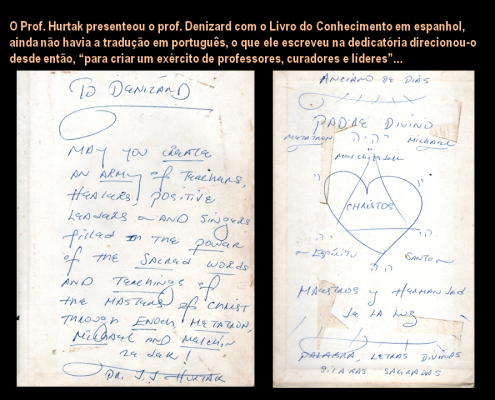 O Prof. Hurtak presenteou o prof. Denizard com o Livro do Conhecimento em espanhol,
ainda não havia a tradução em português, o que ele escreveu na dedicatória direcionou-o
desde então, “para criar um exército de professores, curadores e líderes”...
TO DENIZARD
MAY YOU CREATE
AN ARMY of TEACHERS,
HEALERS, POSITIVE
LEADERS AND SINGERS
filled IN the power
of the SACRED WORDS
AND TEACHINGS of
the MASTERS of CHRIST
THROUGH ENOCH, METATRON,
MICHAEL AND MELCHI
zedek!
DR. J.J. HURTAK
ANCIANO DE DIAS
PADRE DIVINO
METATRON יהוה MICHAEL
CHRISTOS
ESPIRITU SANTO
MAESTROS y HERMANDAD
de LA LUZ
PALABRA, LETRAS DIVINAS
SAGRADAS